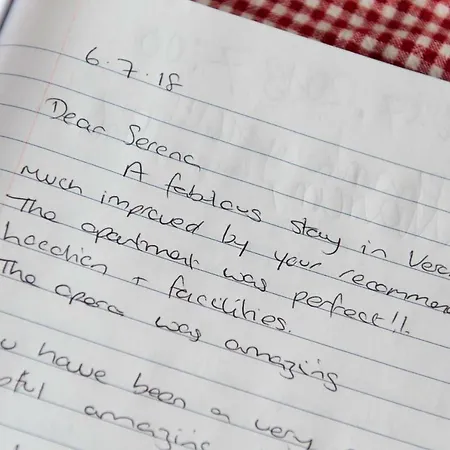 6.7.18
Dear Serena
A fabulous stay in Vero
much improved by your recomme
The apartment was perfect!!
Location + facilities.
The opera was amazing
u have been a very
pful amazing